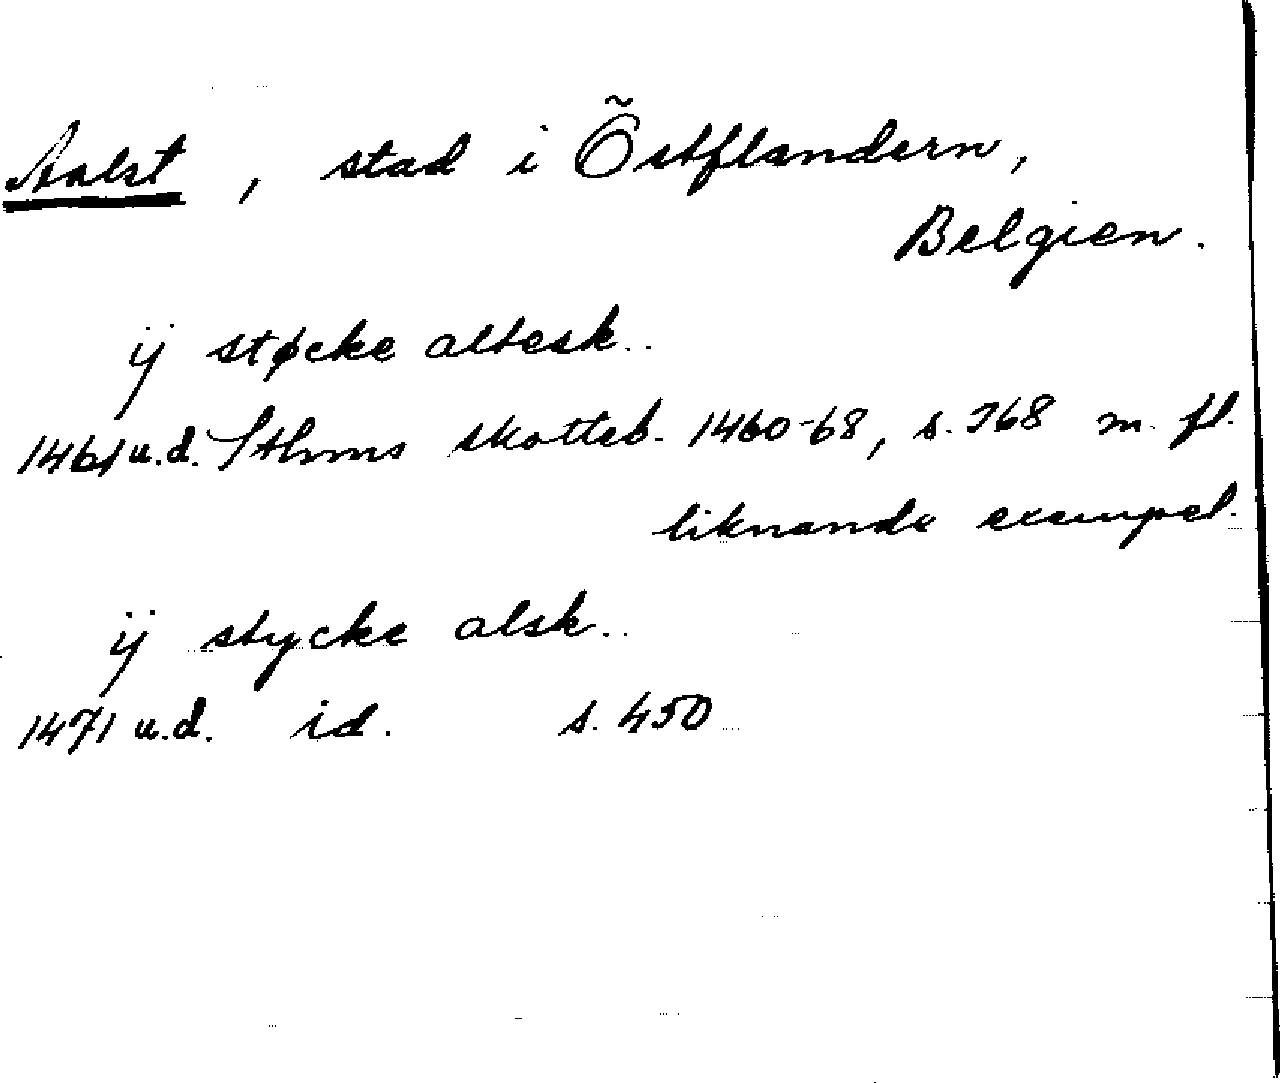 Aalst, stad i Östflandern,
Belgien.
ij støcke altesk..
1461 u.d. Sthms skotteb. 1460-68, s. 368 m. fl.
liknande exempel.
ij stycke alsk..
1471 u.d. id. s. 450